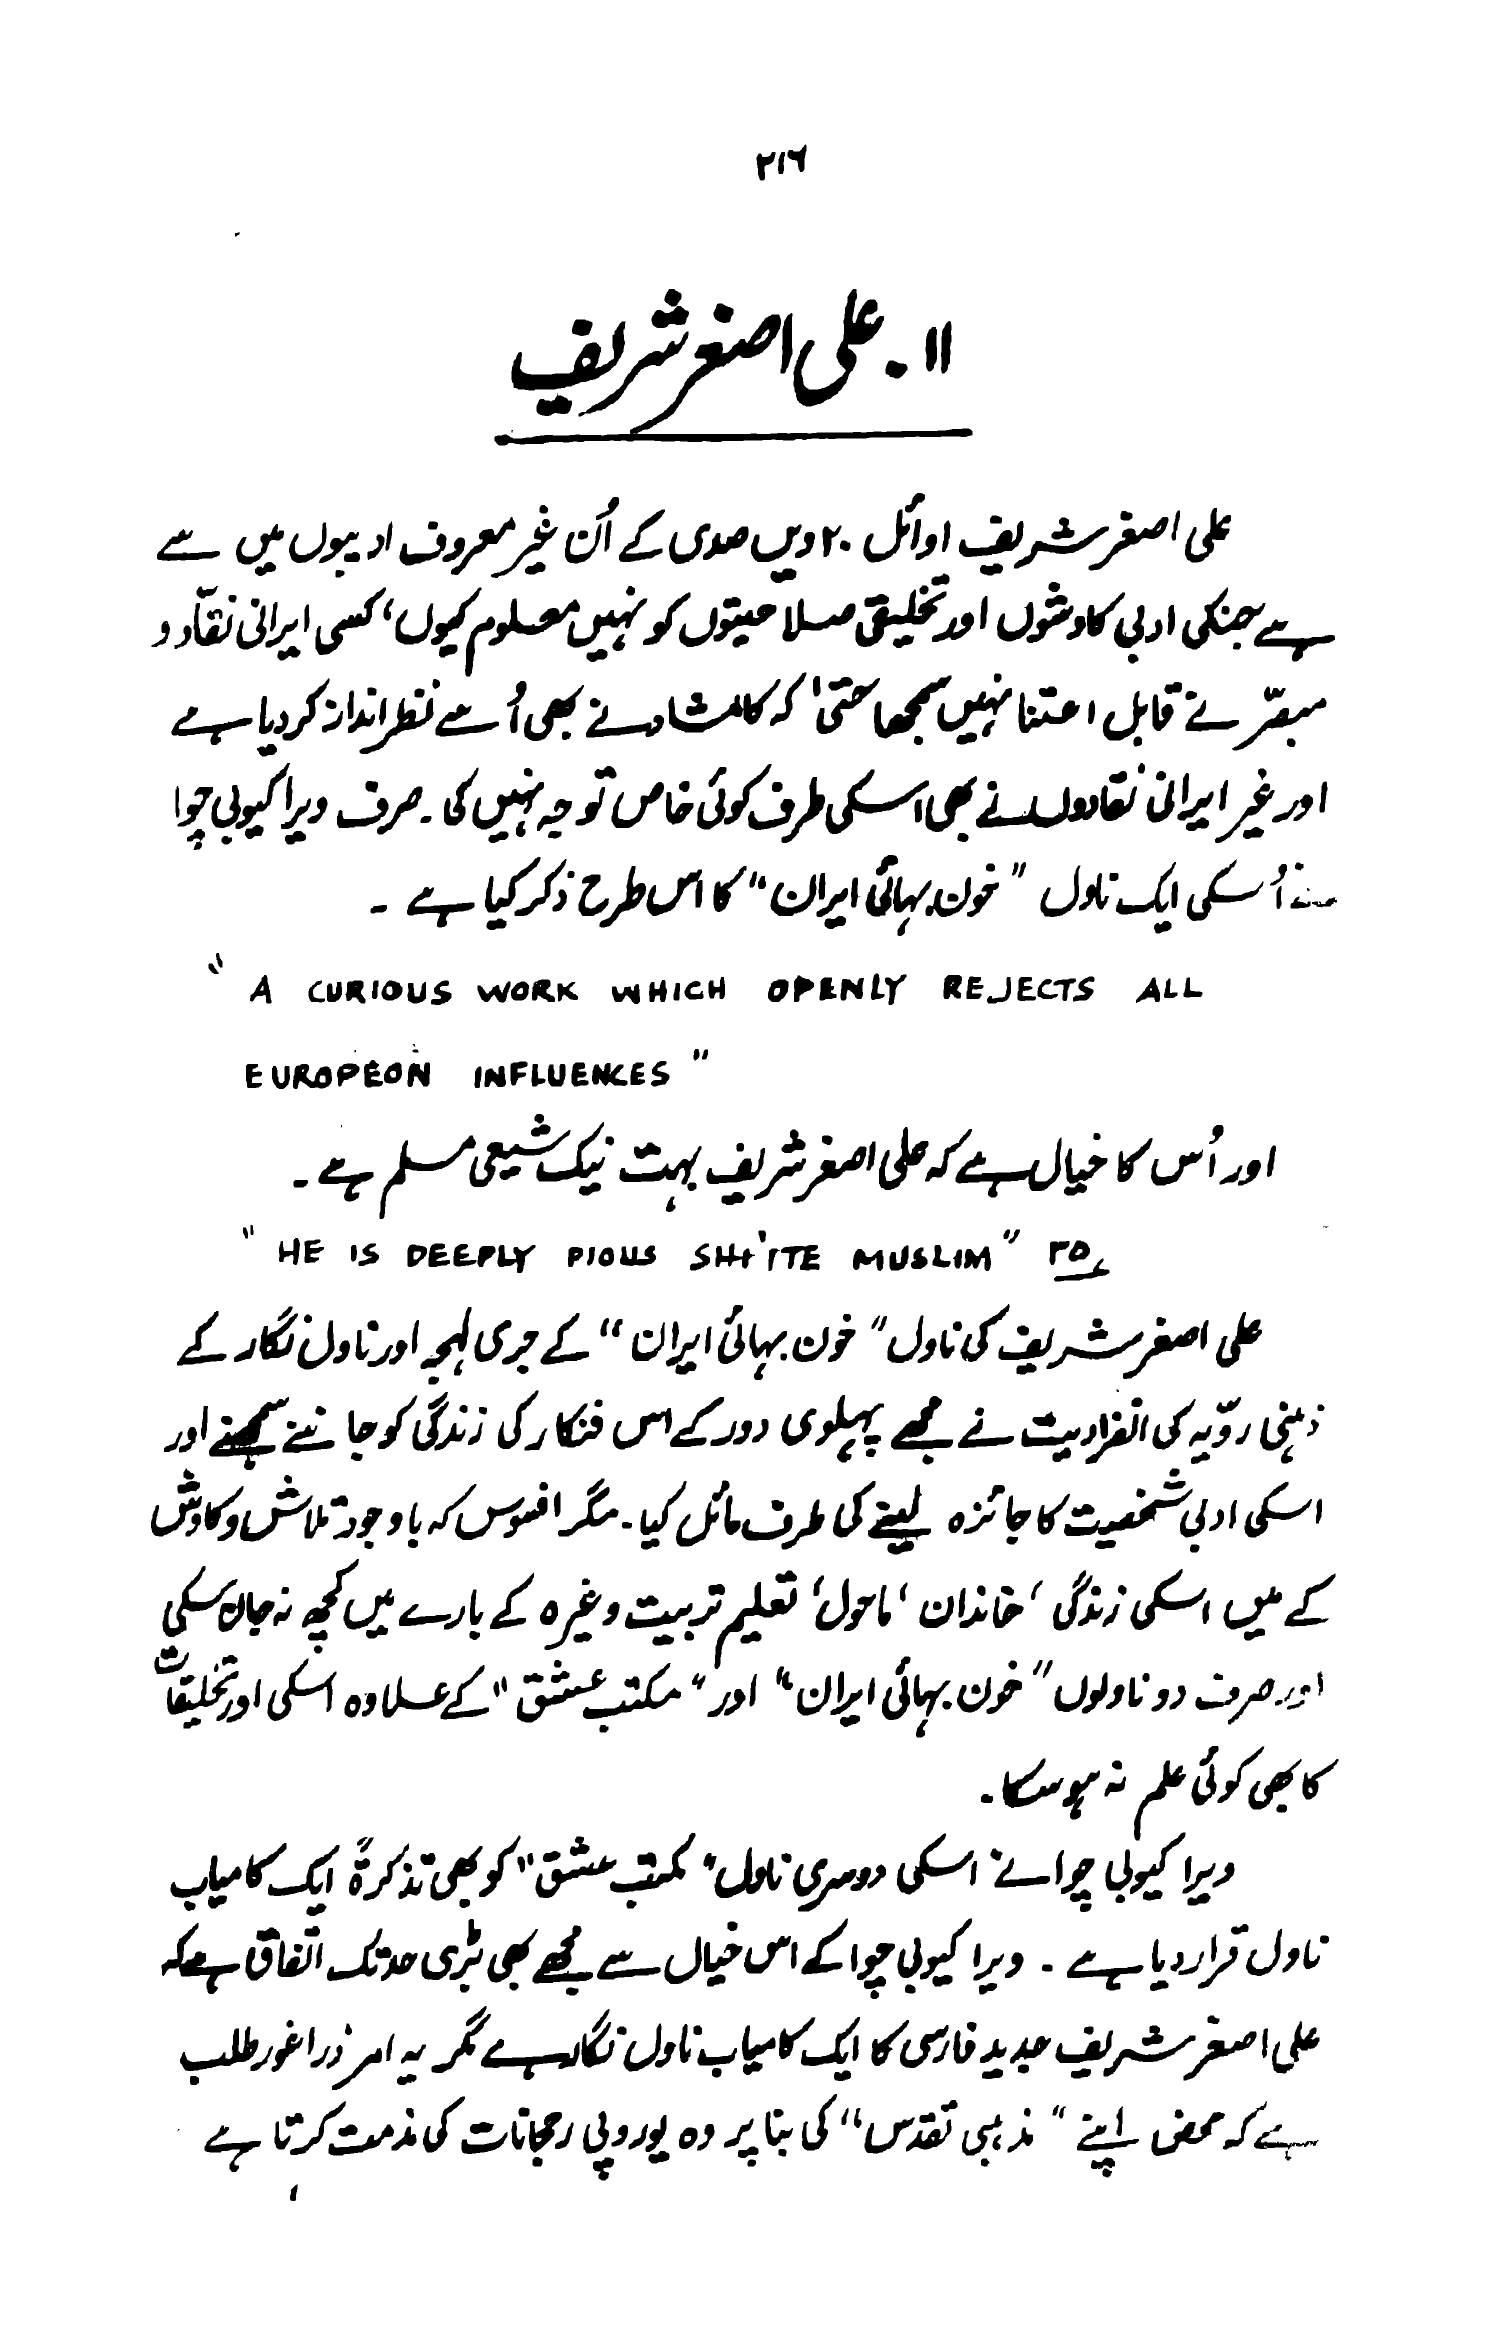 ۲۱۶
۱۱۔ علی اصغر شریف
علی اصغر شریف اوائل ۲۰ ویں صدی کے اُن غیر معروف ادیبوں میں سے
ہے جنکی ادبی کاوشوں اور تخلیقی صلاحیتوں کو نہیں معلوم کیوں، کسی ایرانی نقّاد و
مبصّر نے قابل اعتنا نہیں سمجھا حتیٰ کہ کامشاد نے بھی اُسے نظر انداز کر دیا ہے
اور غیر ایرانی نقادوں نے بھی اسکی طرف کوئی خاص توجہ نہیں کی۔ صرف ویرا کیوبی چوا
نے اُسکی ایک ناول "خون بہائی ایران" کا اس طرح ذکر کیا ہے ۔
"A CURIOUS WORK WHICH OPENLY REJECTS ALL
EUROPEON INFLUENCES"
اور اُس کا خیال ہے کہ علی اصغر شریف بہت نیک شیعی مسلم ہے ۔
"HE IS DEEPLY PIOUS SHI'ITE MUSLIM" ۲۵؎
علی اصغر شریف کی ناول "خون بہائی ایران" کے جری لہجہ اور ناول نگار کے
ذہنی روّیہ کی انفرادیت نے مجھے پہلوی دور کے اس فنکار کی زندگی کو جاننے سمجھنے اور
اسکی ادبی شخصیت کا جائزہ لینے کی طرف مائل کیا۔ مگر افسوس کہ باوجود تلاش و کاوش
کے میں اسکی زندگی، خاندان، ماحول، تعلیم تربیت وغیرہ کے بارے میں کچھ نہ جان سکی
اور صرف دو ناولوں "خون بہائی ایران" اور "مکتب عشق" کے علاوہ اسکی اور تخلیقات
کا بھی کوئی علم نہ ہو سکا۔
ویرا کیوبی چوا نے اسکی دوسری ناول "مکتب عشق" کو بھی تذکرۃً ایک کامیاب
ناول قرار دیا ہے ۔ ویرا کیوبی چوا کے اس خیال سے مجھے بھی بڑی حد تک اتفاق ہے کہ
علی اصغر شریف جدید فارسی کا ایک کامیاب ناول نگار ہے مگر یہ امر ذرا غور طلب
ہے کہ محض اپنے "مذہبی تقدس" کی بنا پر وہ یوروپی رجحانات کی مذمت کرتا ہے